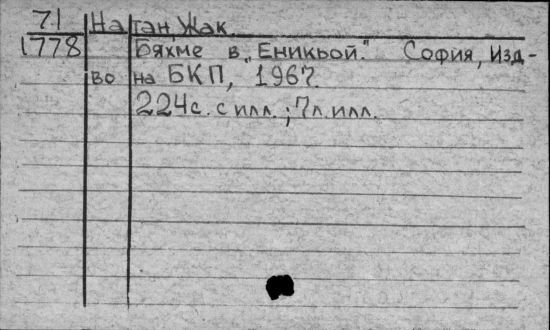 71
1778
Натан, Жак.
Бяхме в „Еникьой." София, Изд-
во на БКП, 1967.
224с. с илл.; 7л. илл.